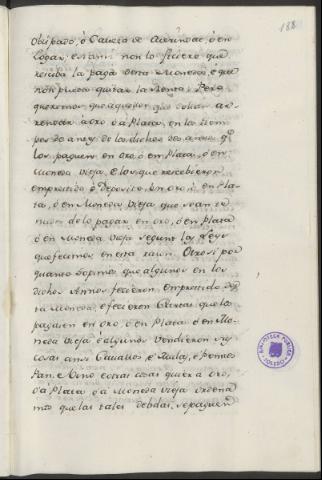 188
Obispado, ó Caveza de Merindad, ó en
Logar, e si ansi non lo ficiere que
reciba la paga desta Moneda, é que
non pueda quitar la Renta. Pero
queremos, que aquellos que solian ar-
rendar á oro ó á Plata, en los tiem-
pos de antes de los dichos dos años, q.e
los paguen en oro, ó en Plata, ó en
Moneda vieja, e los que recebieron
emprestido ó Deposito, en oro ó en Pla-
ta, ó en Moneda vieja que sean te-
nudos de lo pagar en oro, ó en Plata
ó en Moneda vieja segunt la Ley
que fecimos en esta razon. Otrosi por
quanto sopimos que algunos en los
dichos Annos fecieron Emprestido
Moneda, é fecieron Cartas que lo
paguen en oro, ó en Plata ó en Mo-
neda vieja é algunos vendieron
cosas ansi Cavallos é Mulas, é
Pan, e Vino é otras cosas quier á oro,
ó á Plata ó á Moneda vieja ordena
mos que las tales debdas, se paguen
BIBLIOTECA PUBLICA
TOLEDO